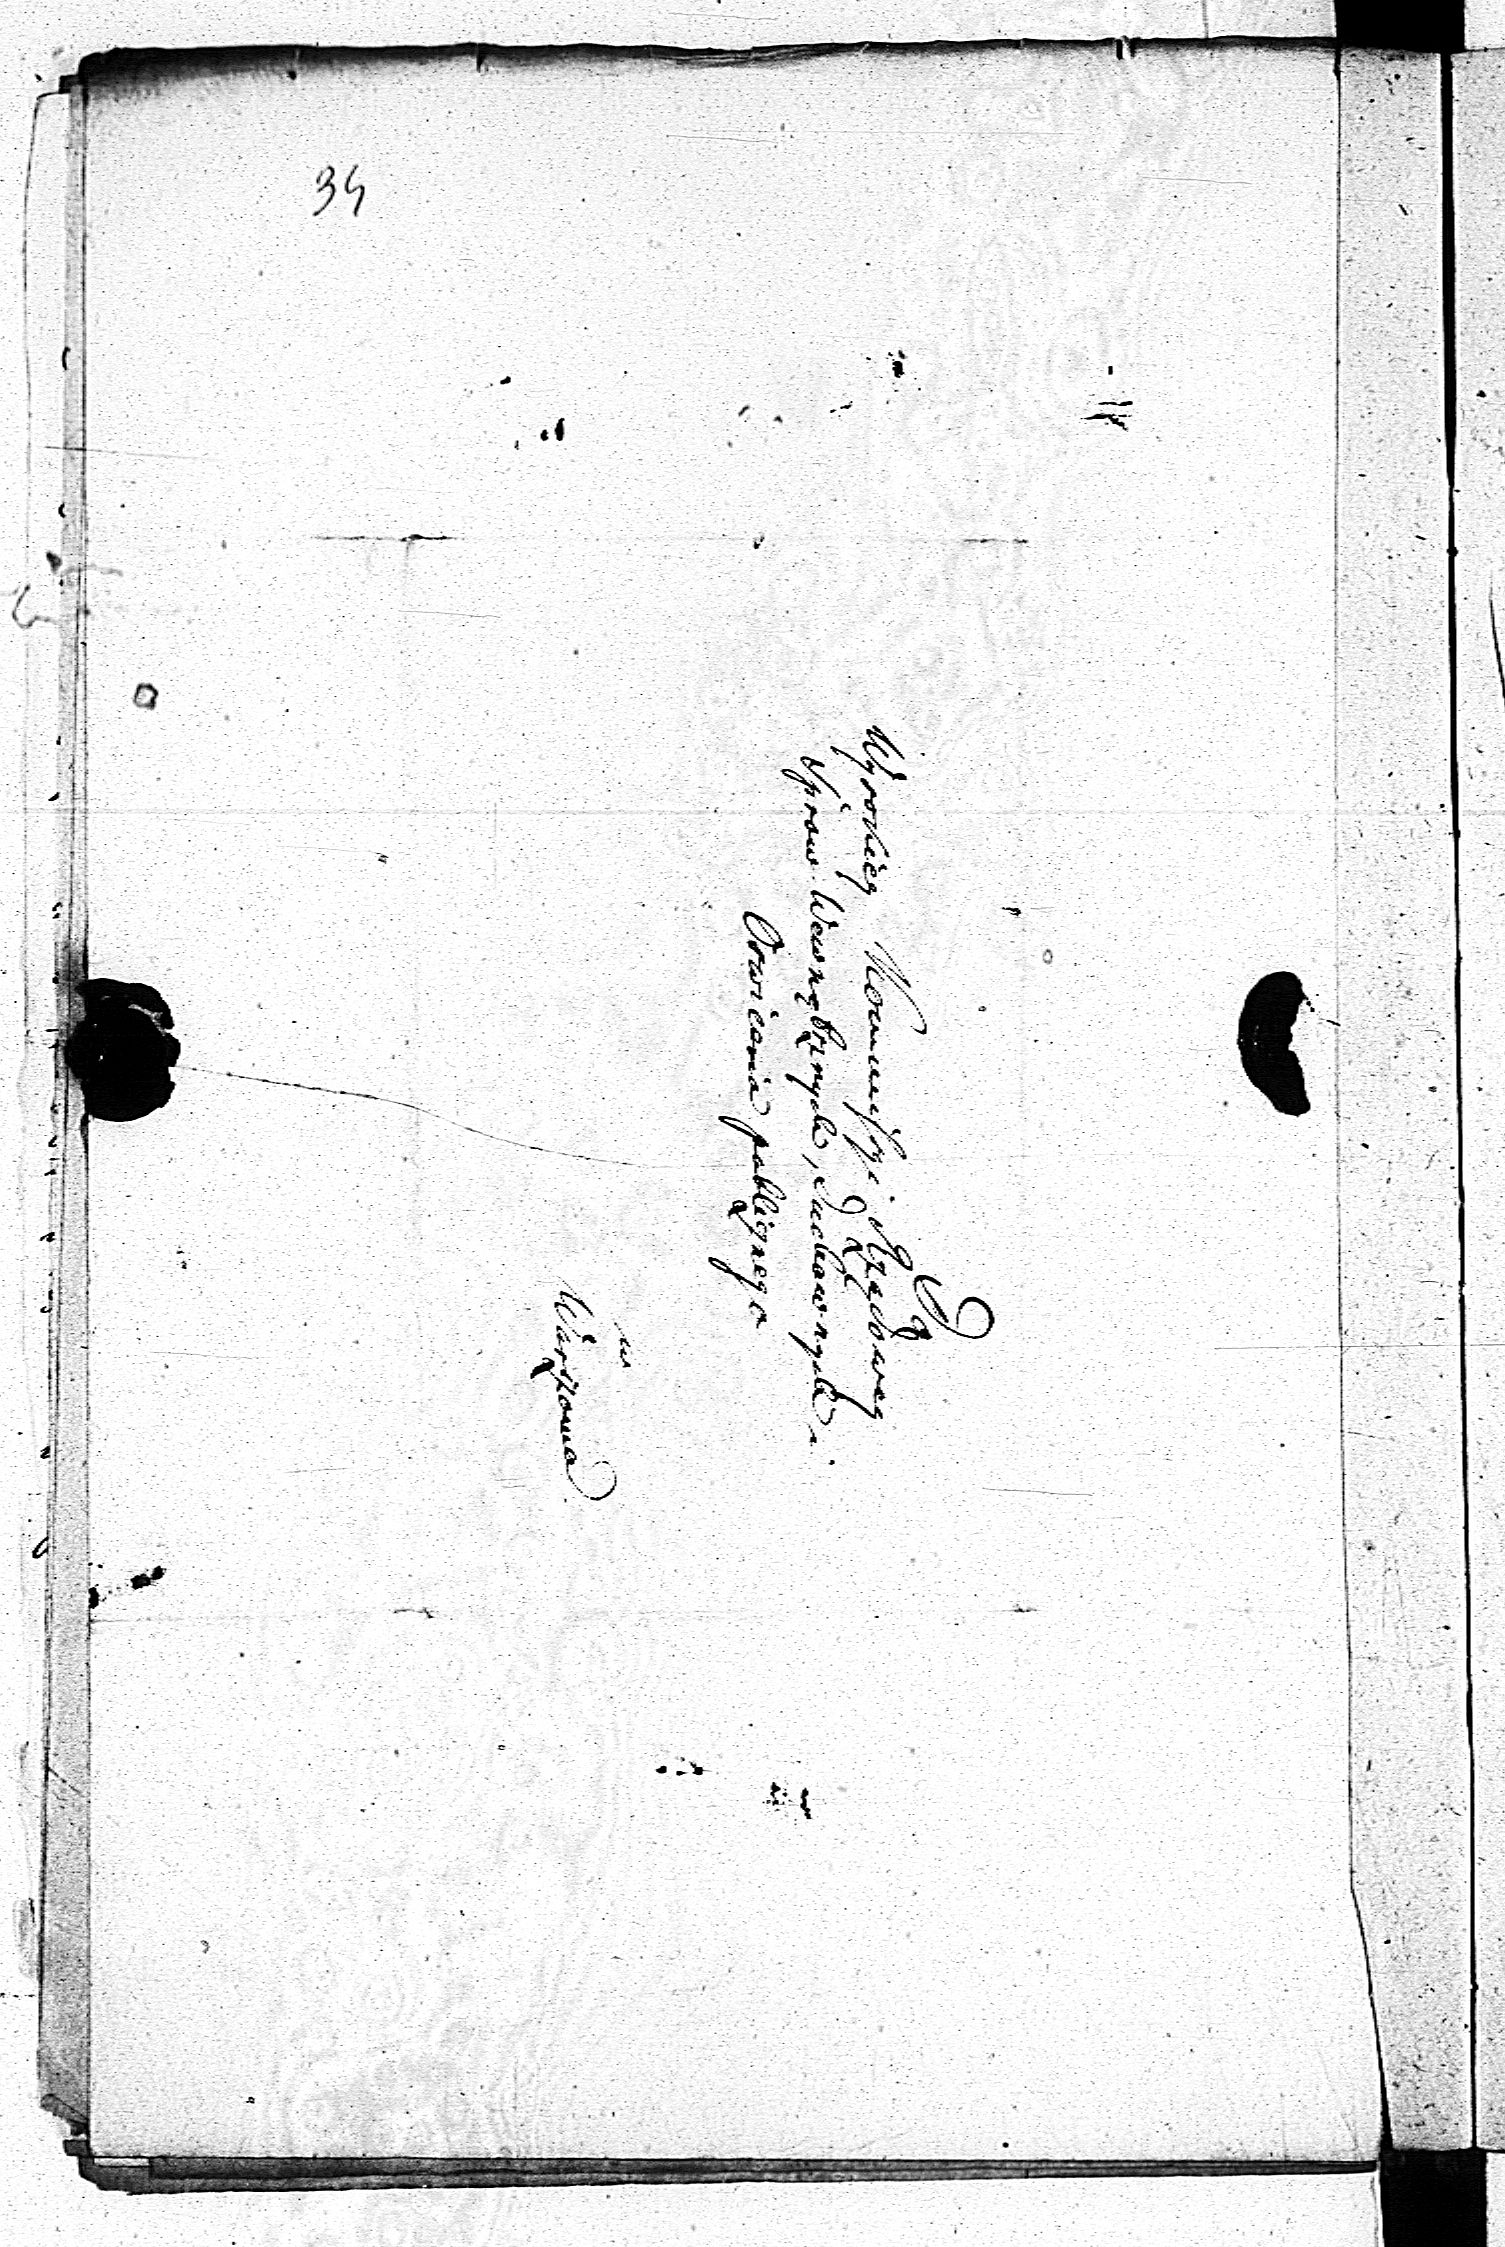 34
Do
Wysokiey Kommissyi Rządowey
Spraw Wewnętrznych, Duchownych i
Oświecenia publicznego
w
Warszawie